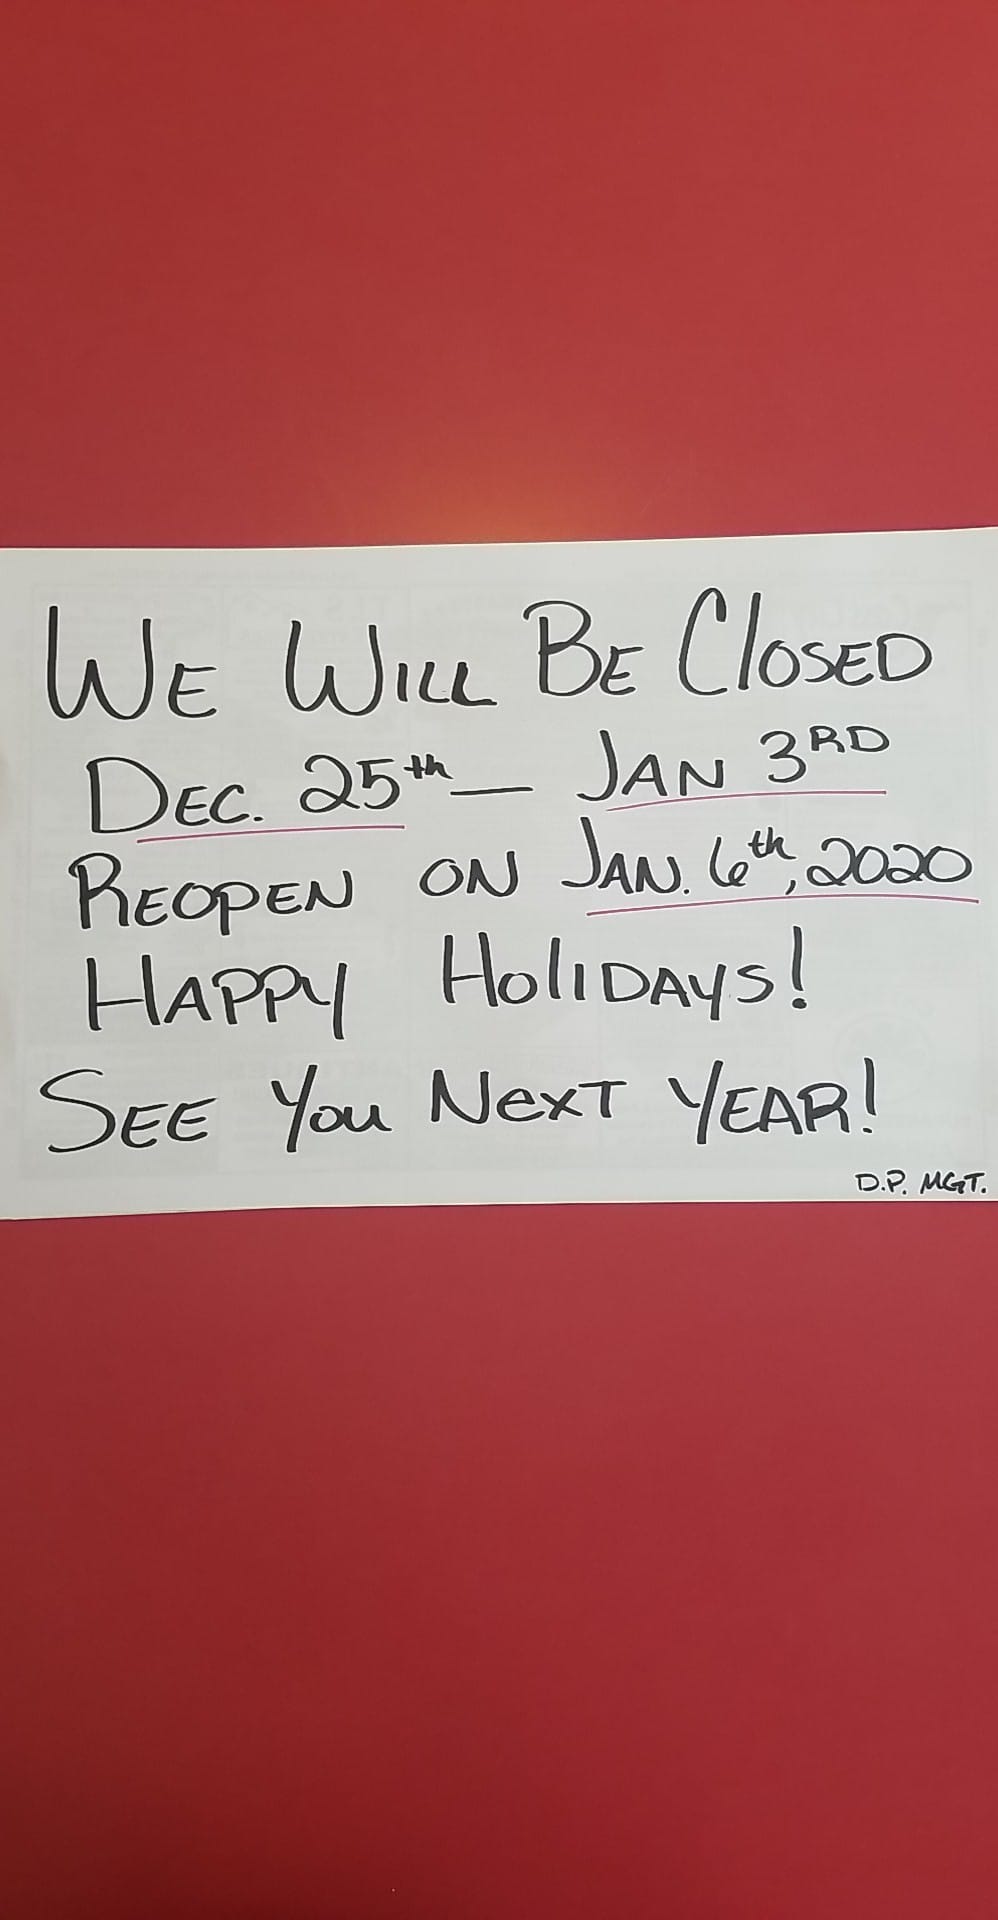 WE WILL BE CLOSED
DEC. 25th — JAN 3RD
REOPEN ON JAN. 6th, 2020
HAPPY HOLIDAYS!
SEE YOU NEXT YEAR!
D.P. MGT.